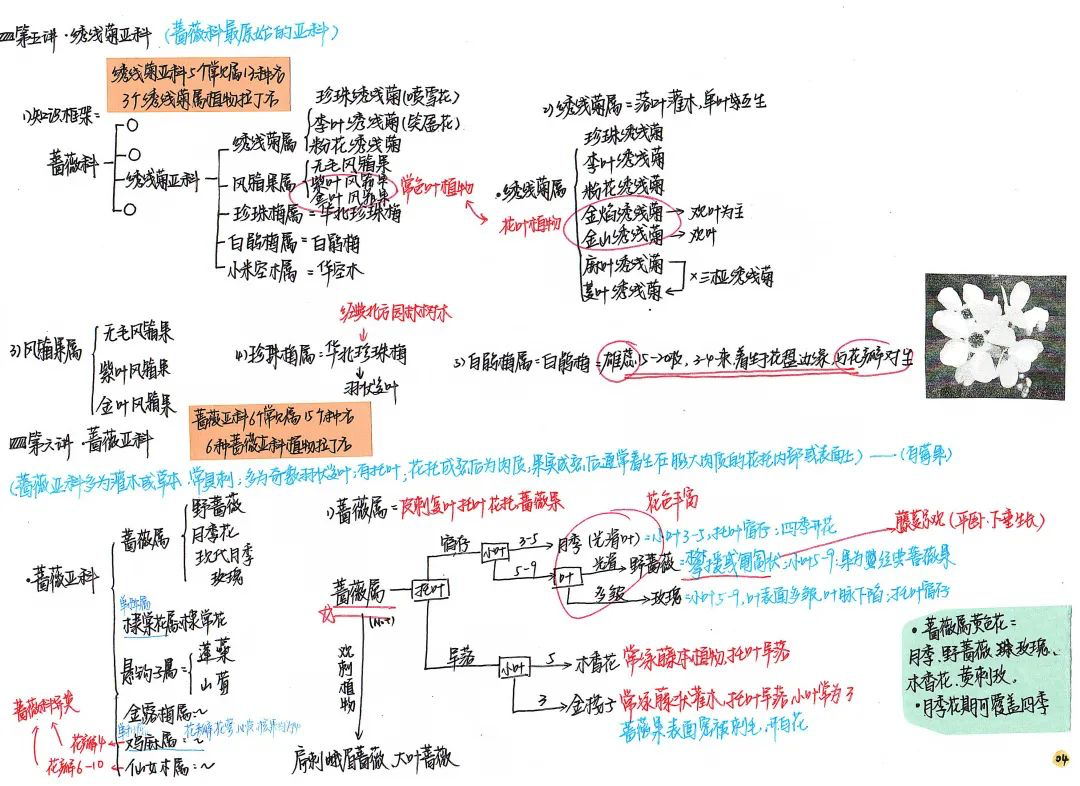 第五讲·绣线菊亚科 (蔷薇科最原始的亚科)
绣线菊亚科5个常见属12种左右
3个绣线菊属植物拉丁名
1)知识框架=
蔷薇科
绣线菊亚科
绣线菊属
珍珠绣线菊(喷雪花)
李叶绣线菊(笑靥花)
粉花绣线菊
风箱果属
无毛风箱果
紫叶风箱果
金叶风箱果
常色叶植物
珍珠梅属=华北珍珠梅
白鹃梅属=白鹃梅
小米空木属=华空木
2)绣线菊属=落叶灌木,单叶互生
·绣线菊属
珍珠绣线菊
李叶绣线菊
粉花绣线菊
金焰绣线菊→观叶为主
金山绣线菊→观叶
麻叶绣线菊
菱叶绣线菊
×三桠绣线菊
花叶植物
3)风箱果属
无毛风箱果
紫叶风箱果
金叶风箱果
经典北方园林树木
4)珍珠梅属=华北珍珠梅
羽状复叶
5)白鹃梅属=白鹃梅=雄蕊15-20枚,3-4一束着生于花盘边缘与花瓣对生
第六讲·蔷薇亚科
蔷薇亚科6个常见属15个种左右
6种蔷薇亚科植物拉丁名
(蔷薇亚科多为灌木或草本,常具刺;多为奇数羽状复叶;有托叶;花托成熟后为肉质,果实成熟后通常着生在膨大肉质的花托内部或表面上)——(有莓果)
·蔷薇亚科
蔷薇属
野蔷薇
月季花
现代月季
玫瑰
单种属
棣棠花属:棣棠花
悬钩子属
蓬蘽
山莓
金露梅属:~
鸡麻属:~
仙女木属:~
蔷薇科异类
花瓣4
花瓣6-10
1)蔷薇属=皮刺复叶托叶花托,蔷薇果
花色丰富
蔷薇属
托叶
宿存
小叶
3-5
月季(光滑叶)=小叶3-5,托叶宿存;四季开花
5-9
叶
光滑
野蔷薇=攀援或匍匐状;小叶5-9;果为经典蔷薇果
藤蔓形状(平卧·下垂生长)
多皱
玫瑰=小叶5-9,叶表面多皱,叶脉下陷;托叶宿存
早落
小叶
5
木香花 常绿藤本植物,托叶早落
3
金樱子 常绿藤状灌木,托叶早落,小叶常为3
蔷薇果表面密被刺毛,开白花
观刺植物
扁刺峨眉蔷薇、大叶蔷薇
·蔷薇属黄色花=
月季、野蔷薇、玫瑰、
木香花、黄刺玫。
·月季花期可覆盖四季
04